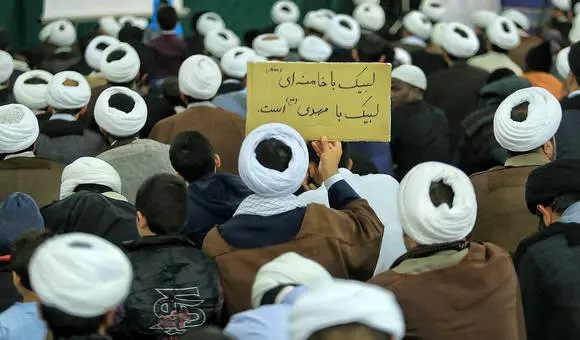 لبیک با خامنه ای
لبیک با مهدی (عج) است.